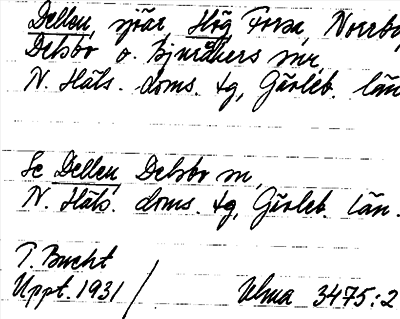 Dellen, sjöar, Hög, Forsa, Norrbo,
Delsbo o. Bjuråkers snr,
N. Häls. doms. tg, Gävleb. län
Se Dellen Delsbo sn,
N. Häls. doms. tg, Gävleb. län.
T. Bucht
Uppt. 1931 / Ulma 3475:2